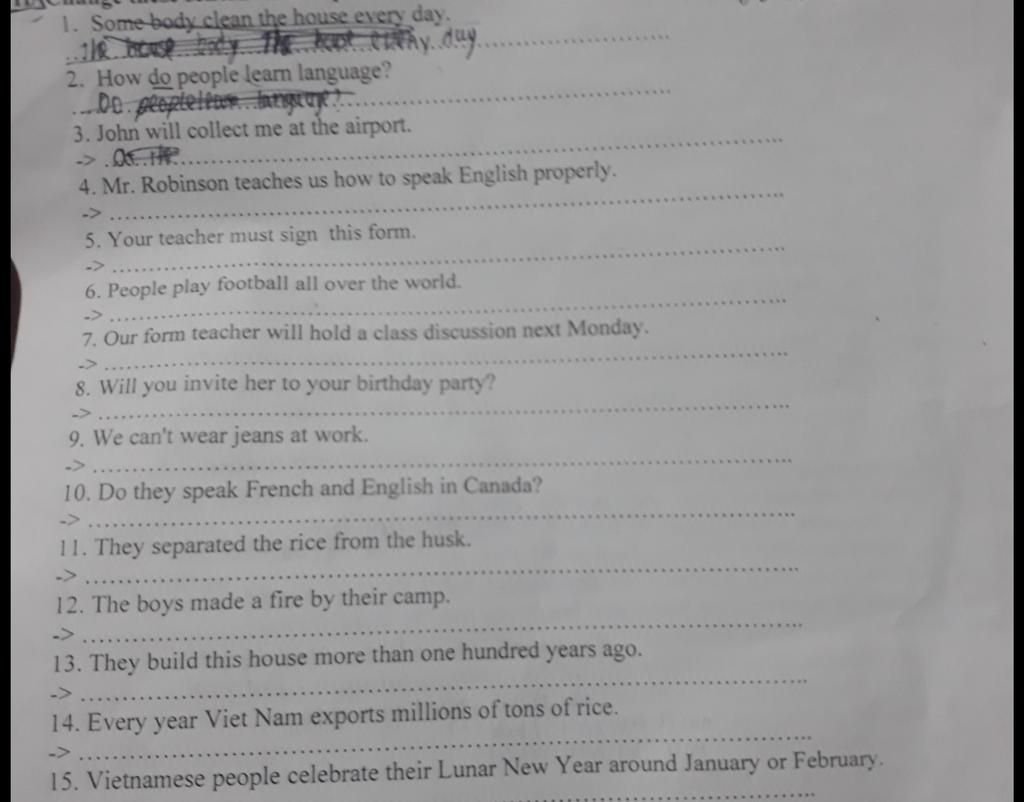 1. Some body clean the house every day.
the house body The every day
2. How do people learn language?
Do people learn language?
3. John will collect me at the airport.
->
4. Mr. Robinson teaches us how to speak English properly.
->
5. Your teacher must sign this form.
->
6. People play football all over the world.
->
7. Our form teacher will hold a class discussion next Monday.
->
8. Will you invite her to your birthday party?
->
9. We can't wear jeans at work.
->
10. Do they speak French and English in Canada?
->
11. They separated the rice from the husk.
->
12. The boys made a fire by their camp.
->
13. They build this house more than one hundred years ago.
->
14. Every year Viet Nam exports millions of tons of rice.
->
15. Vietnamese people celebrate their Lunar New Year around January or February.